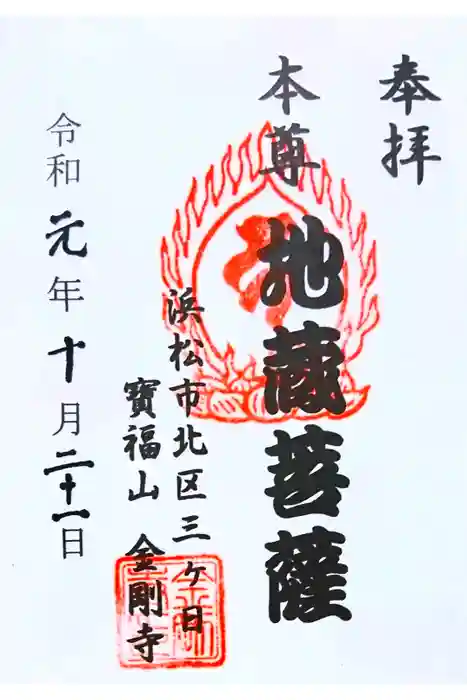 奉拝
本尊 地蔵菩薩
浜松市北区三ケ日
寳福山 金剛寺
令和元年十月二十一日